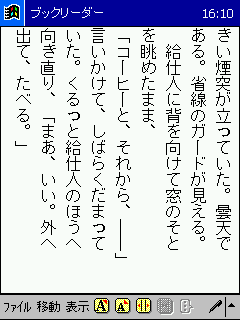 ブックリーダー 16:10
きい煙突が立っていた。曇天で
ある。省線のガードが見える。
　給仕人に背を向けて窓のそと
を眺めたまま、
「コーヒーと、それから、――」
言いかけて、しばらくだまって
いた。くるっと給仕人のほうへ
向き直り、「まあ、いい。外へ
出て、たべる。」
ファイル 移動 表示